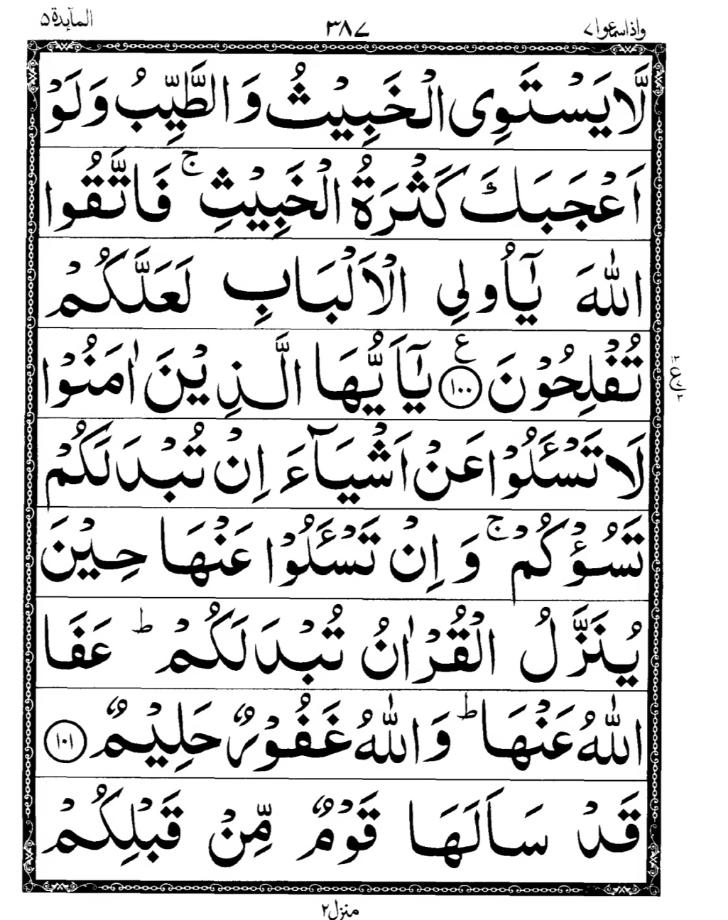 واذاسمعوا ٧ ٣٨٧ المآىدة ٥
لَّا يَسْتَوِى الْخَبِيْثُ وَ الطَّيِّبُ وَ لَوْ
اَعْجَبَكَ كَثْرَةُ الْخَبِيْثِ ۚ فَاتَّقُوا
اللّٰهَ يٰٓاُولِى الْاَلْبَابِ لَعَلَّكُمْ
تُفْلِحُوْنَ ﴿١٠٠﴾ ع يٰٓاَيُّهَا الَّذِيْنَ اٰمَنُوْا
لَا تَسْـَٔلُوْا عَنْ اَشْيَآءَ اِنْ تُبْدَ لَكُمْ
تَسُؤْكُمْ ۚ وَ اِنْ تَسْـَٔلُوْا عَنْهَا حِيْنَ
يُنَزَّلُ الْقُرْاٰنُ تُبْدَ لَكُمْ ؕ عَفَا
اللّٰهُ عَنْهَا ؕ وَ اللّٰهُ غَفُوْرٌ حَلِيْمٌ ﴿١٠١﴾
قَدْ سَاَلَهَا قَوْمٌ مِّنْ قَبْلِكُمْ
منزل ٢